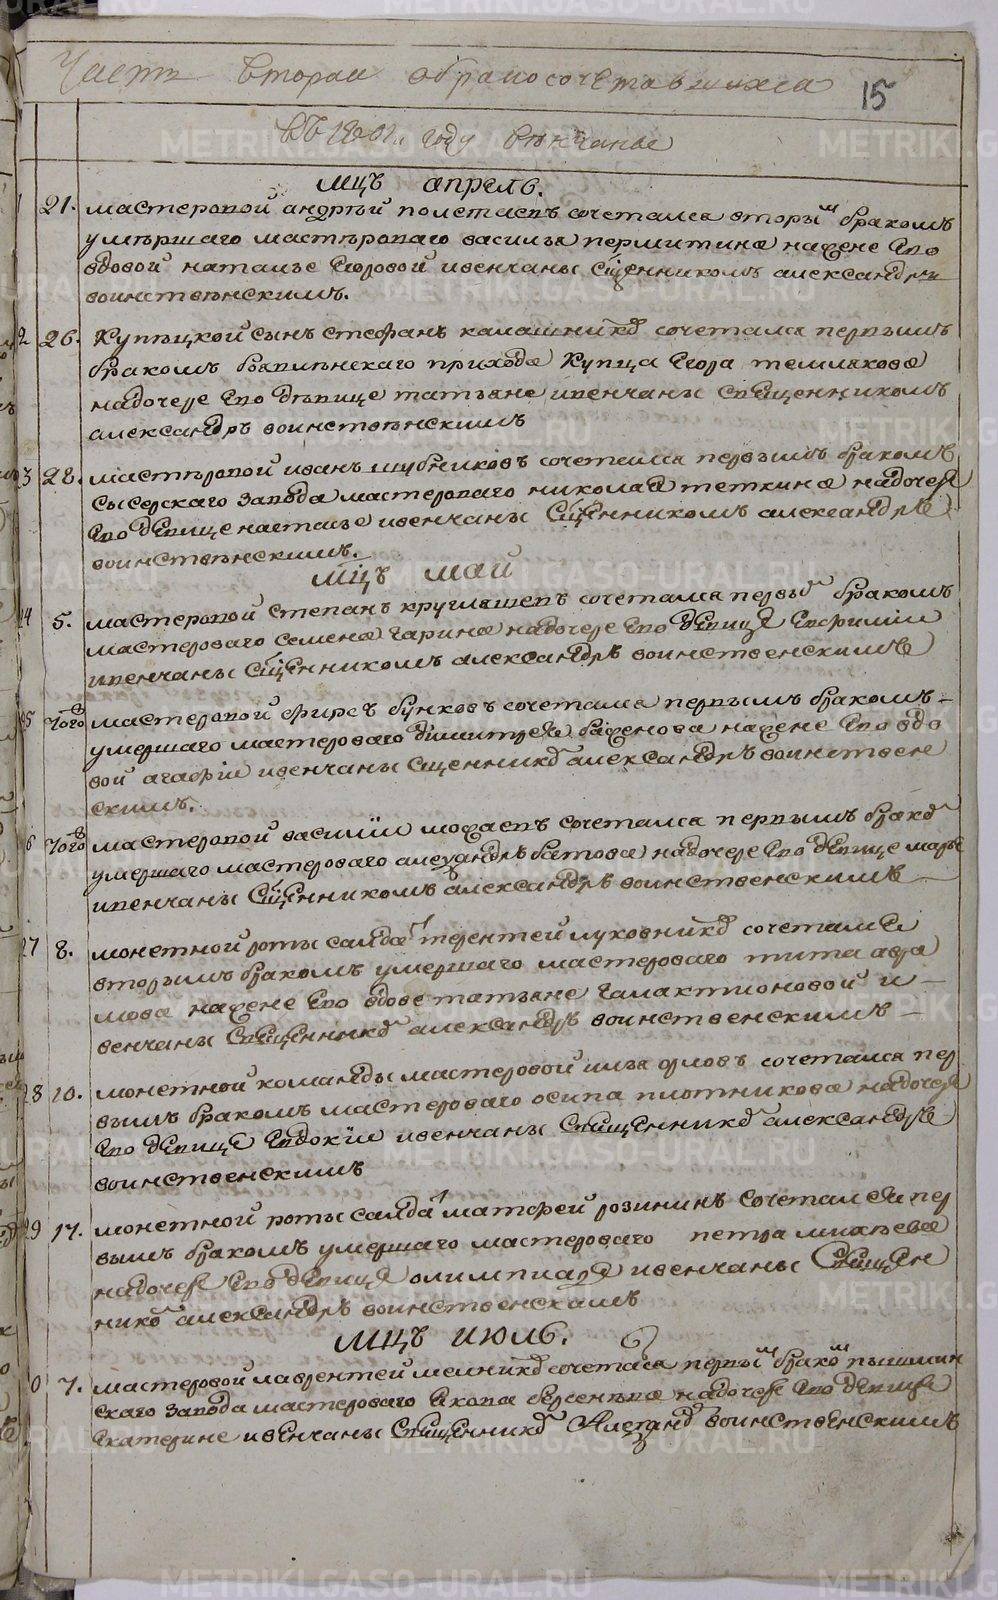 Часть вторая о бракосочетавшихся
15
въ 1801м году венчаные
мцъ апрель.
21. мастеровой андрей полетаевъ сочетался вторым бракомъ
умершаго мастероваго василья пермитина на жене его
вдовой наталье егоровой и венчаны сщенникомъ александръ
воинственскимъ.
26. купецкой сынъ стефанъ калашников сочетался первымъ
бракомъ прихода купца егора
на дочере его девице татьяне и венчаны священникомъ
александръ воинственскимъ
28. мастеровой иванъ шубниковъ сочетался первымъ бракомъ
сысерскаго завода мастероваго николая теткина на дочере
его девице настасье и венчаны сщенникомъ александръ
воинственскимъ.
мцъ май
5. мастеровой степанъ круглашевъ сочетался первым бракомъ
мастероваго семена гарина на дочере его девице
и венчаны сщенникомъ александръ воинственскимъ
25 того ж мастеровой фирсъ бунковъ сочетался первымъ бракомъ
умершаго мастероваго димитрея баженова на жене его вдо
вой агафiи и венчаны сщенником александръ воинствен
скимъ.
6 того ж мастеровой василiи можаевъ сочетался первымъ браком
умершаго мастероваго алеѯандръ батова на дочере его девице марье
и венчаны сщенникомъ александръ воинственскимъ
27 8. монетной роты салдат терентей луковников сочетался
вторымъ бракомъ умершаго мастероваго тита авра
мова на жене его вдове татьяне галактионовой и
венчаны священником александръ воинственскимъ
28 10. монетной команды мастеровой илья орловъ сочетался пер
вымъ бракомъ мастероваго осипа плотникова на дочере
его девице евдокiи и венчаны священником александръ
воинственскимъ
29 17. монетной роты салдат матфей розининъ сочетался пер
вымъ бракомъ умершаго мастероваго петра михеева
на дочере его девице олимпиаде и венчаны священ
ником александръ воинственскимъ
мцъ июль.
0 7. мастеровой лаврентей мелников сочетался первым браком пышмин
скаго завода мастероваго якова берсенева на дочере его девице
екатерине и венчаны священником Алеѯандр воинственскимъ
METRIKI.GASO-URAL.RU